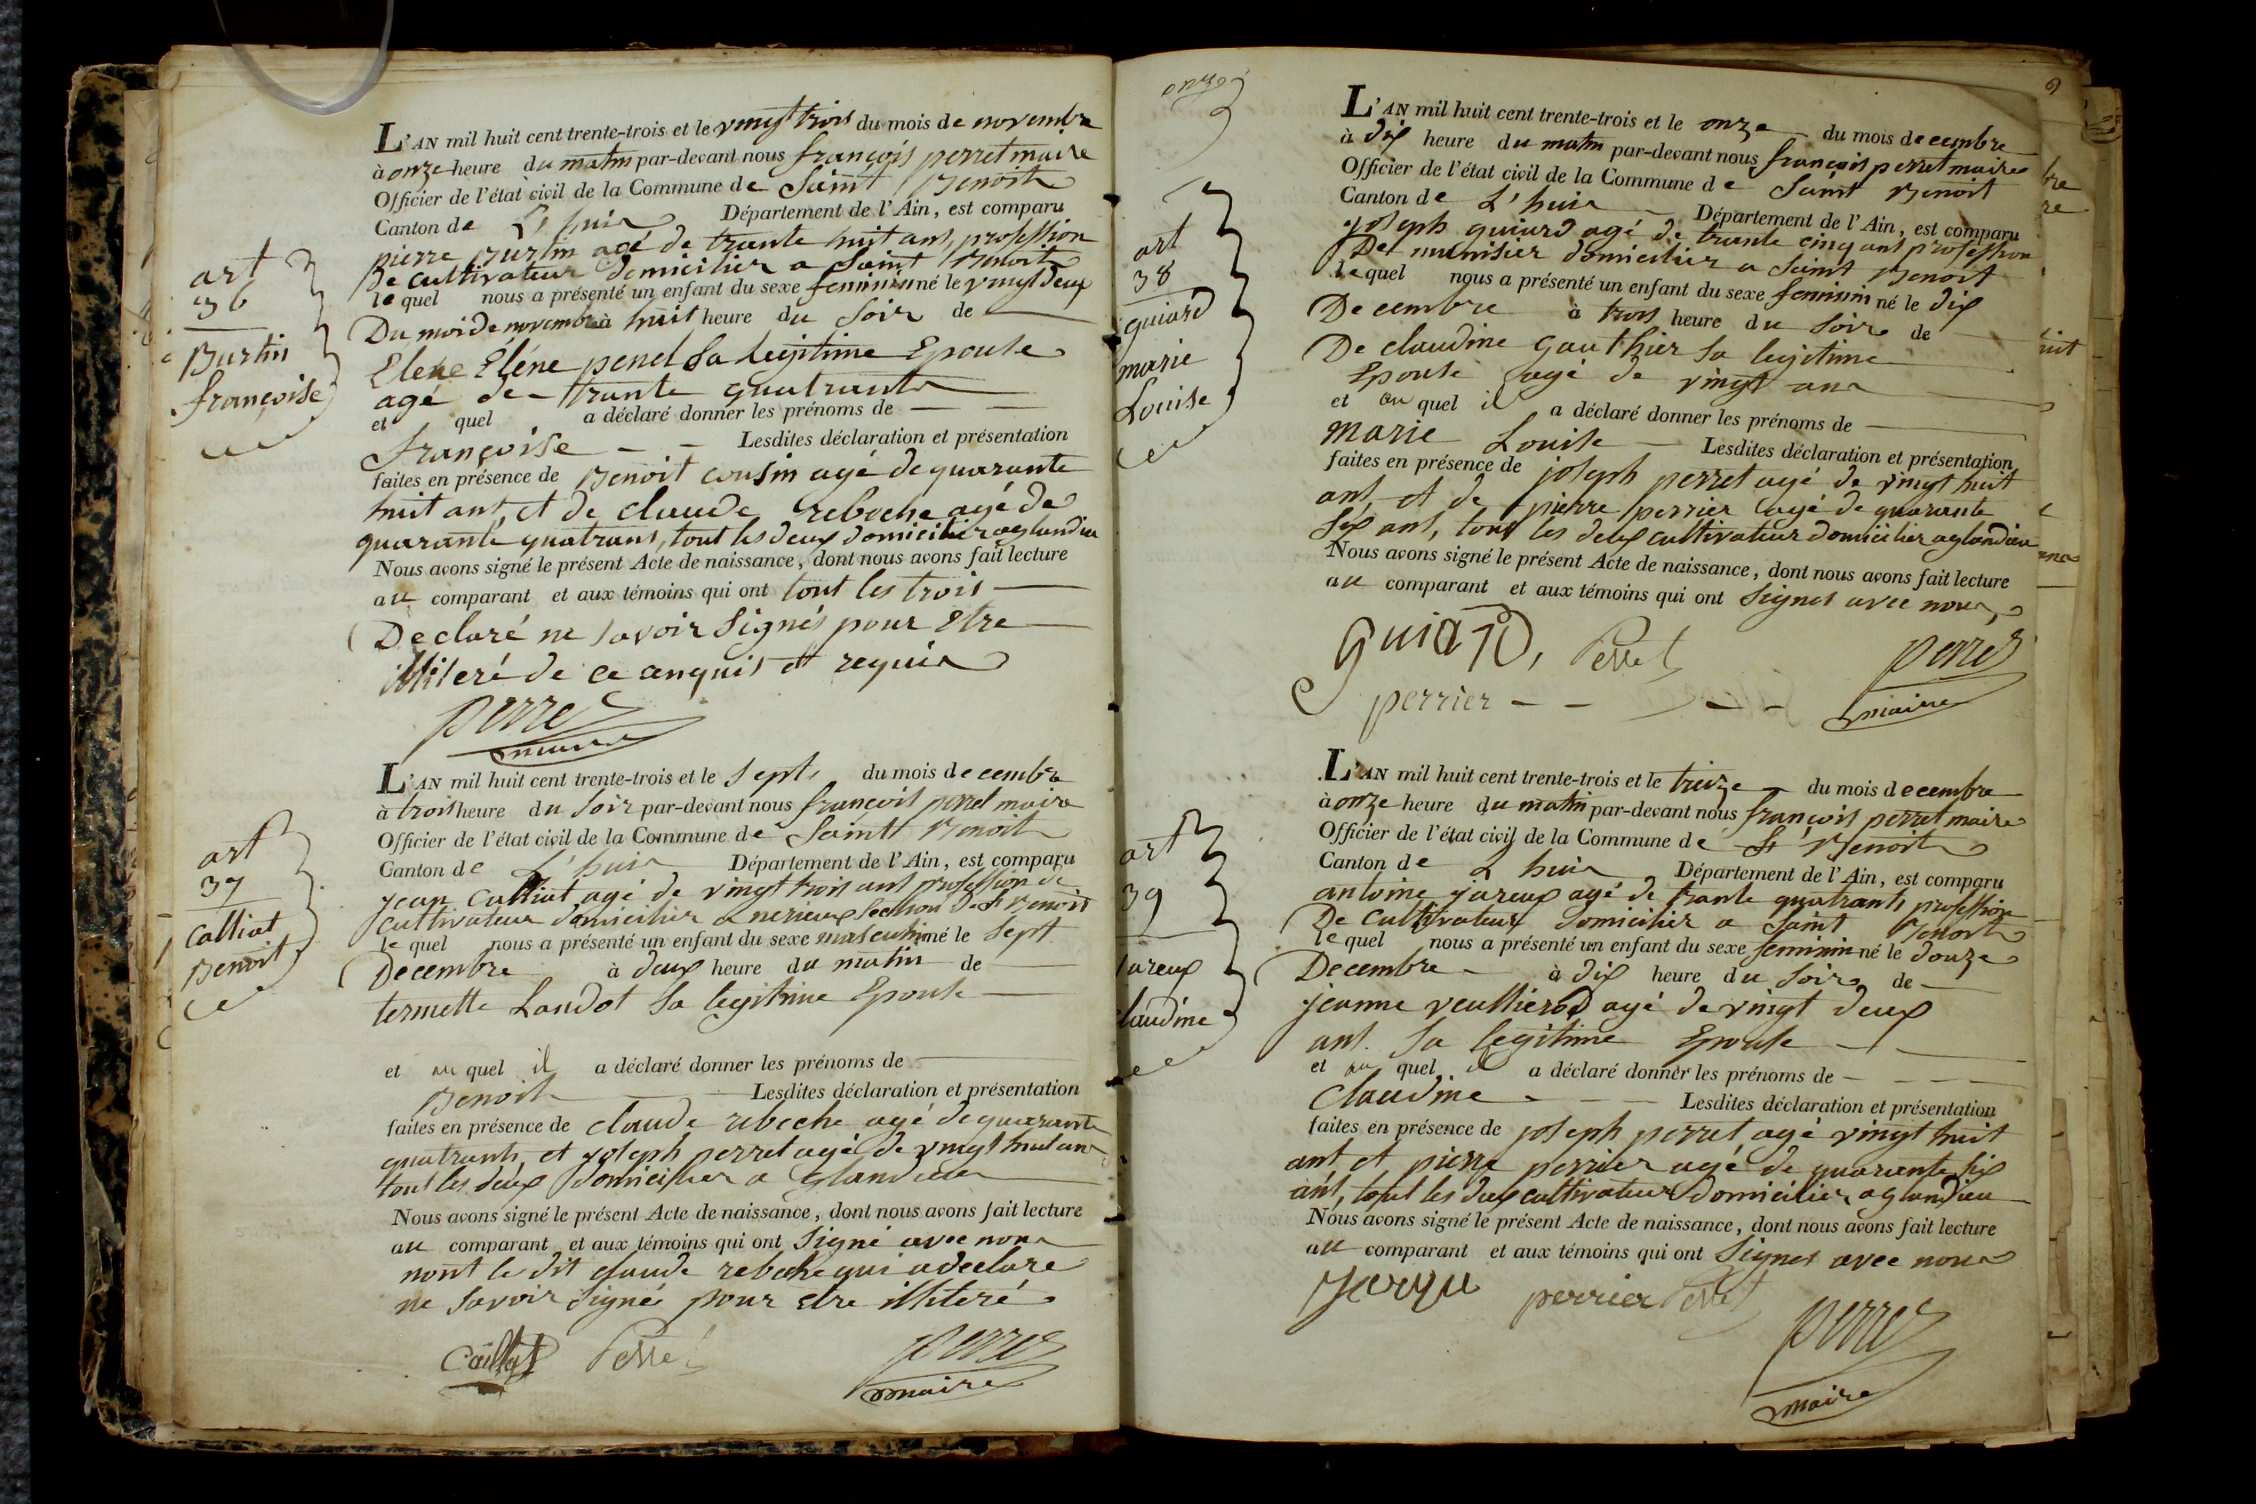 art
36
Burtin
françoise
L'AN mil huit cent trente-trois et le vingt trois du mois de novembre
à onze heure du matin par-devant nous françois perret maire
Officier de l'état civil de la Commune de Saint Benoit
Canton de L'huis Département de l'Ain, est comparu
pierre Burtin agé de trante huit ans, profession
De cultivateur domicilier a Saint Benoit
le quel nous a présenté un enfant du sexe feminin né le vingt deux
Du moi de novembre à huit heure du Soir de
Elene Eléne penel Sa legitime Epouse
agé de trante quatrants
et quel a déclaré donner les prénoms de
françoise Lesdites déclaration et présentation
faites en présence de Benoit cousin agé de quarante
huit ant, et de claude reboche agé de
quarante quatrans, tout les deux domicilier a glandieu
Nous avons signé le présent Acte de naissance, dont nous avons fait lecture
au comparant et aux témoins qui ont tout les trois
Declaré ne Savoir Signés pour Etre
illiteré de ce anquis et requis
perret
maire
art
37
Calliat
Benoit
L'AN mil huit cent trente-trois et le Sept du mois decembre
à trois heure du Soir par-devant nous françois perret maire
Officier de l'état civil de la Commune de Saint Benoit
Canton de L'huis Département de l'Ain, est comparu
jean Calliat agé de vingt trois ant profession de
cultivateur domicilier a nerieux Section de St Benoit
le quel nous a présenté un enfant du sexe masculin né le Sept
Decembre à deux heure du matin de
termette Landot Sa legitime Epouse
et au quel il a déclaré donner les prénoms de
Benoit Lesdites déclaration et présentation
faites en présence de claude reboche agé de quarante
quatrants, et joseph perret agé de vingt huit ans
tout les deux domicilier a Glandieu
Nous avons signé le présent Acte de naissance, dont nous avons fait lecture
au comparant et aux témoins qui ont Signé avec nous
nont le dit claude reboche qui a declare
ne Savoir Signé pour etre illiteré
Caillat Perret perret
maire
onze
art
38
guiard
marie
Louise
L'AN mil huit cent trente-trois et le onze du mois decembre
à dix heure du matin par-devant nous françois perret maire
Officier de l'état civil de la Commune de Saint Benoit
Canton de L'huis Département de l'Ain, est comparu
joseph guiard agé de trante cinq ant profession
De munisier domicilier a Saint Benoit
le quel nous a présenté un enfant du sexe feminin né le dix
Decembre à trois heure du Soir de
De claudine Gauthier Sa legitime
Epouse agé de vingt ans
et au quel il a déclaré donner les prénoms de
marie Louise Lesdites déclaration et présentation
faites en présence de joseph perret agé de vingt huit
ant, et de pierre perrier agé de quarante
Six ant, tout les deux cultivateur domicilier a glandieu
Nous avons signé le présent Acte de naissance, dont nous avons fait lecture
au comparant et aux témoins qui ont Signés avec nous
guiard, Perret perret
perrier maire
art
39
jareux
claudine
L'AN mil huit cent trente-trois et le treize du mois decembre
à onze heure du matin par-devant nous françois perret maire
Officier de l'état civil de la Commune de St Benoit
Canton de L huis Département de l'Ain, est comparu
antoine jareux agé de trante quatrants profession
De Cultivateur domicilier a Saint Benoit
le quel nous a présenté un enfant du sexe feminin né le douze
Decembre à dix heure du Soir de
jeanne veullierod agé de vingt deux
ant. Sa legitime Epouse
et au quel il a déclaré donner les prénoms de
Claudine Lesdites déclaration et présentation
faites en présence de joseph perret agé vingt huit
ant et pierre perrier agé de quarante Six
ant, tout les deux cultivateur domicilier a glandieu
Nous avons signé le présent Acte de naissance, dont nous avons fait lecture
au comparant et aux témoins qui ont Signes avec nous
perrier Perret perret
maire